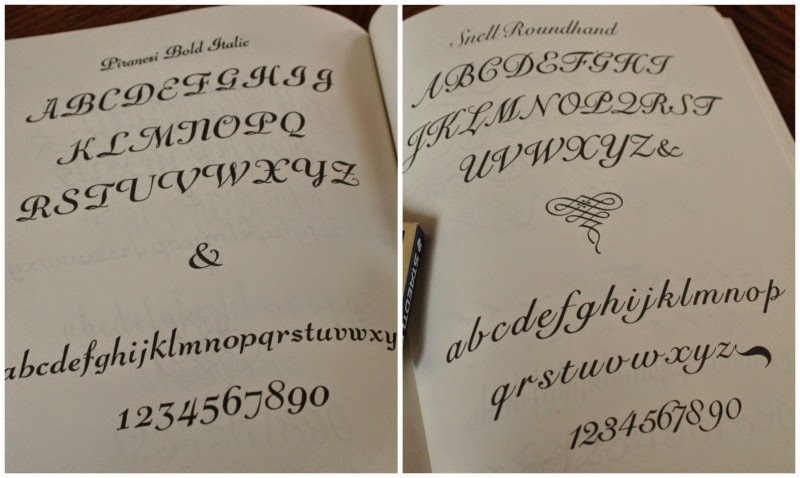 Piranesi Bold Italic
ABCDEFGHIJ
KLMNOPQ
RSTUVWXYZ
&
abcdefghijklmnopqrstuvwxy
1234567890
Snell Roundhand
ABCDEFGHI
JKLMNOPQRST
UVWXYZ&
abcdefghijklmnop
qrstuvwxyz
1234567890